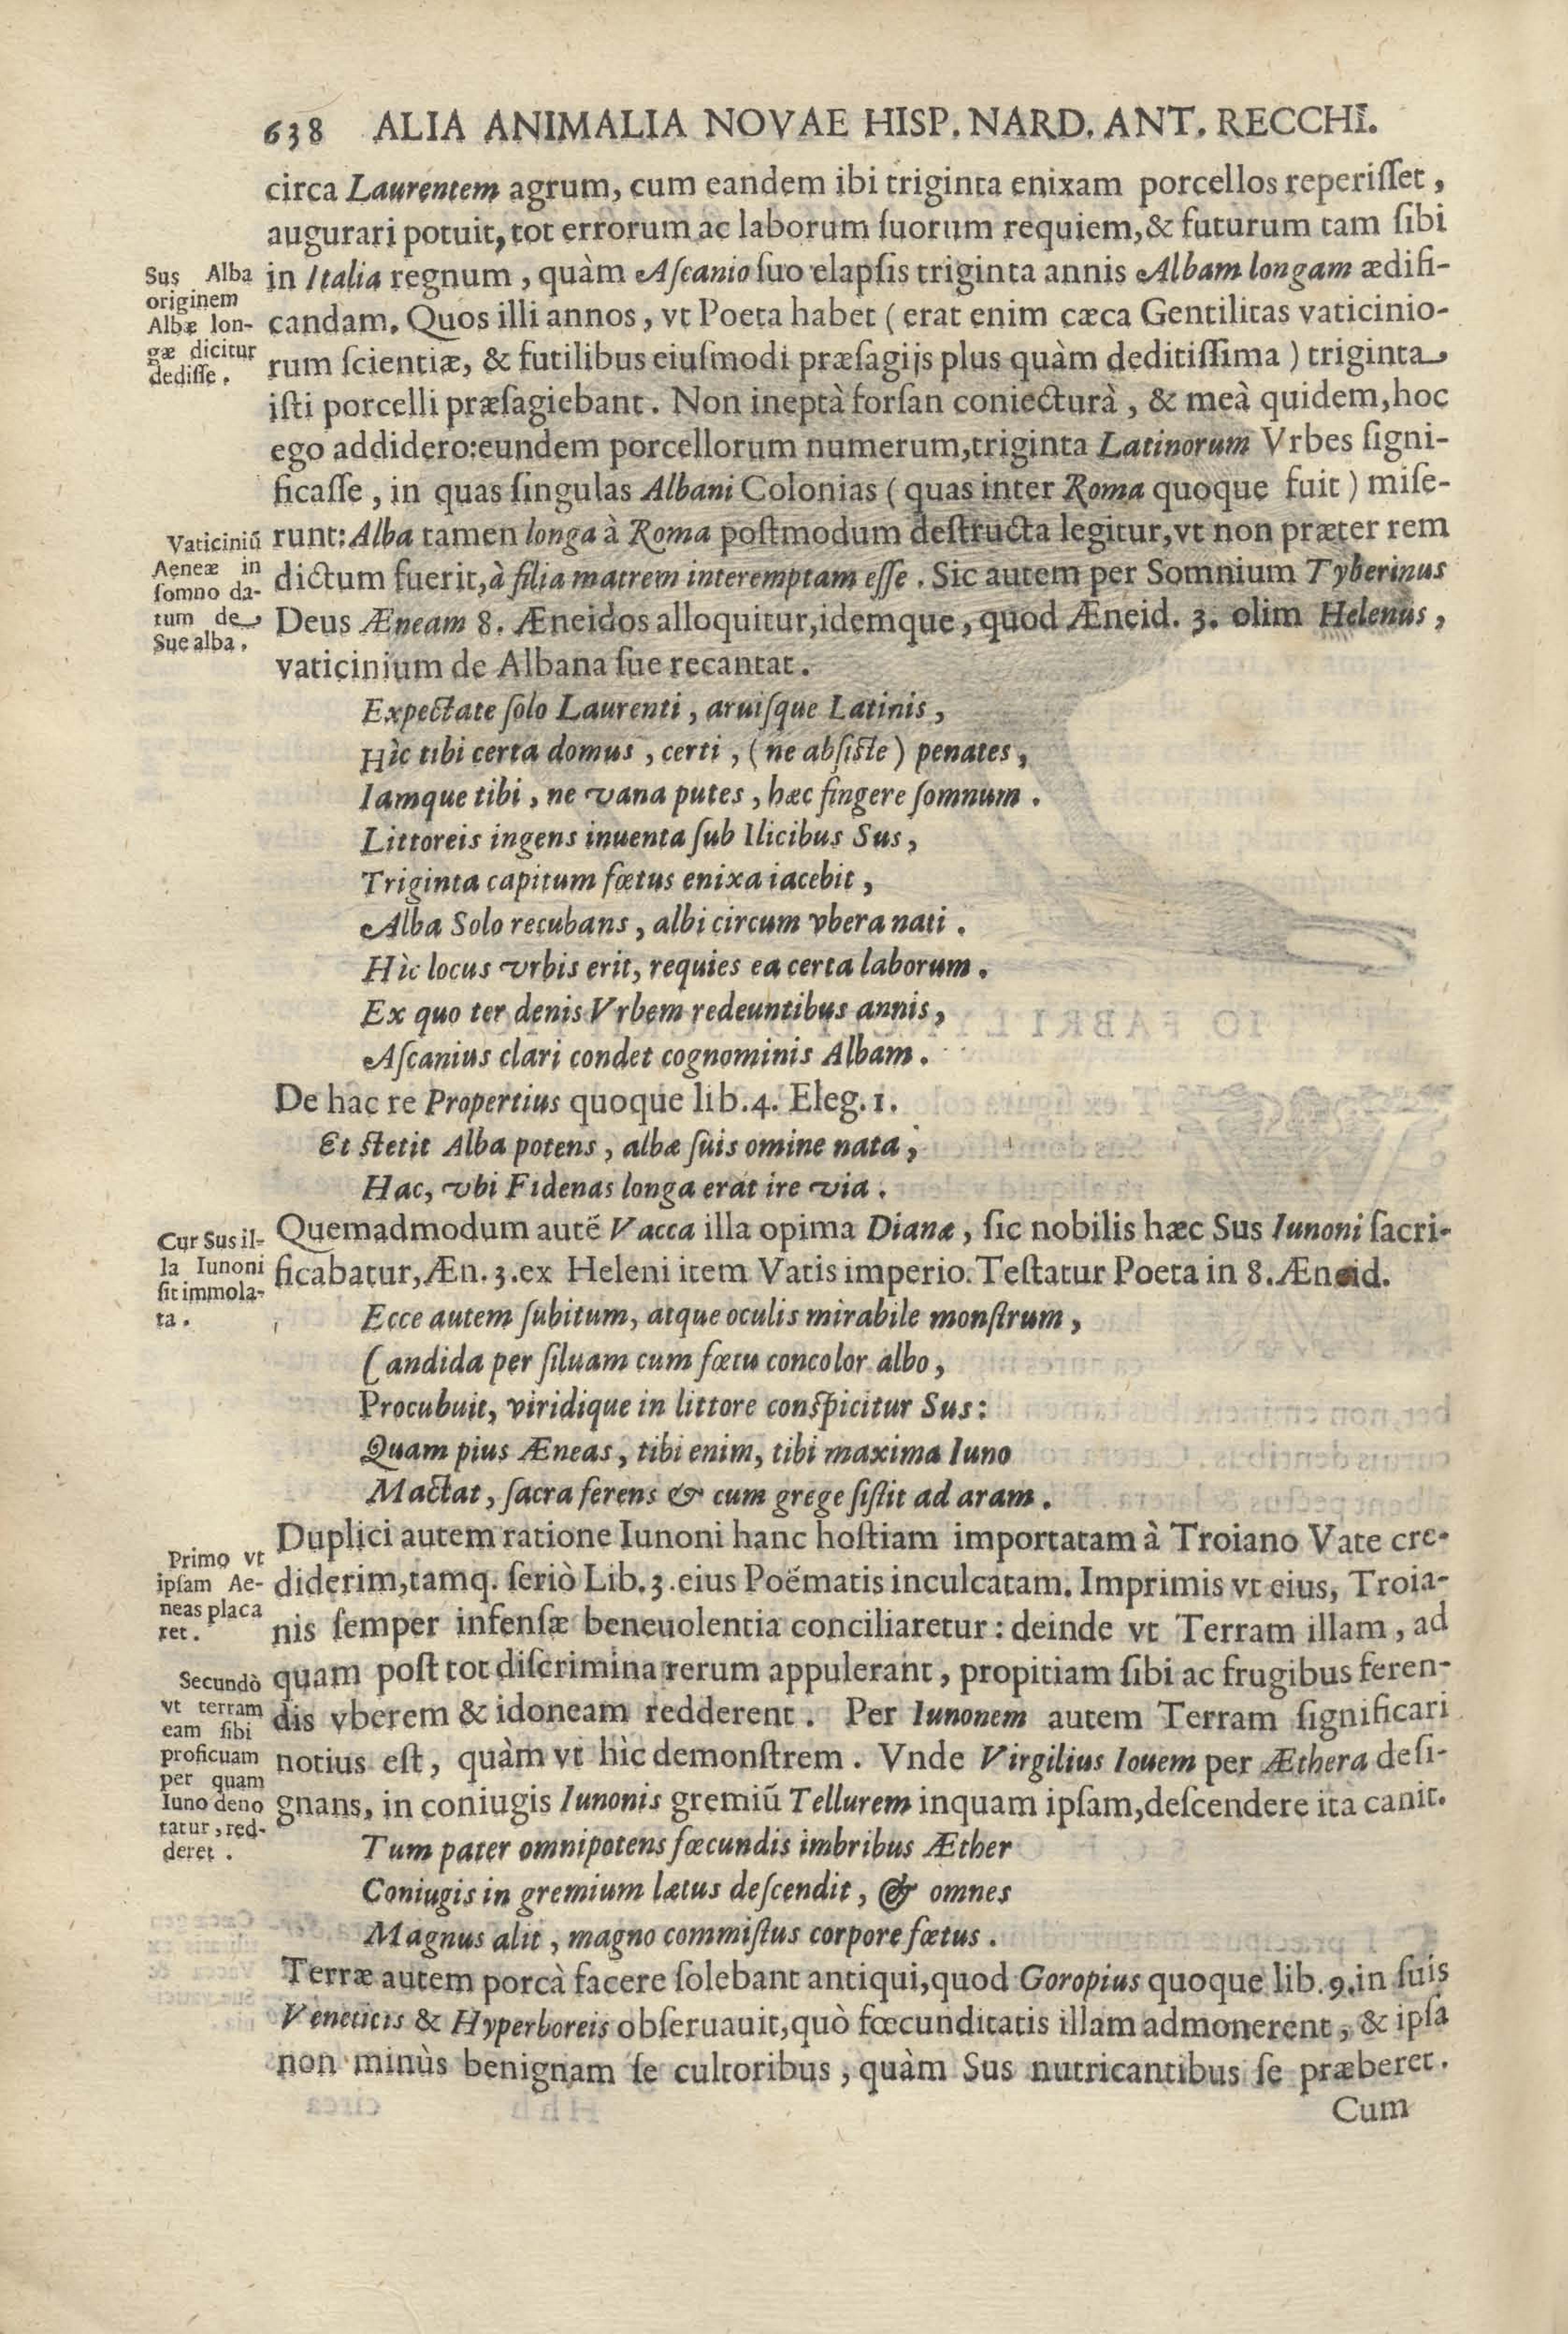 638 ALIA ANIMALIA NOVAE HISP. NARD. ANT. RECCHI.
circa Laurentem agrum, cum eandem ibi triginta enixam porcellos reperiſſet,
augurari potuit, tot errorum ac laborum ſuorum requiem, & futurum tam ſibi
in Italia regnum, quàm Aſcanio ſuo elapſis triginta annis Albam longam ædifi-
candam. Quos illi annos, vt Poeta habet (erat enim cæca Gentilitas vaticinio-
rum ſcientiæ, & futilibus eiuſmodi præſagijs plus quàm deditiſſima) triginta
iſti porcelli præſagiebant. Non ineptà forſan coniecturà, & meà quidem, hoc
ego addidero: eundem porcellorum numerum, triginta Latinorum Vrbes ſigni-
ficaſſe, in quas ſingulas Albani Colonias (quas inter Roma quoque fuit) miſe-
runt: Alba tamen longa à Roma poſtmodum deſtructa legitur, vt non præter rem
dictum fuerit, à filia matrem interemptam eſſe. Sic autem per Somnium Tyberinus
Deus Æneam 8. Æneidos alloquitur, idemque, quod Æneid. 3. olim Helenus,
vaticinium de Albana ſue recantat.
Sus Alba
originem
Albæ lon-
gæ dicitur
dediſſe.
Vaticiniũ
Aeneæ in
ſomno da-
tum de
Sue alba.
Expectate ſolo Laurenti, aruiſque Latinis,
Hìc tibi certa domus, certi, (ne abſiſte) penates,
Iamque tibi, ne vana putes, hæc fingere ſomnum.
Littoreis ingens inuenta ſub Ilicibus Sus,
Triginta capitum fœtus enixa iacebit,
Alba Solo recubans, albi circum vbera nati.
Hìc locus vrbis erit, requies ea certa laborum.
Ex quo ter denis Vrbem redeuntibus annis,
Aſcanius clari condet cognominis Albam.
De hac re Propertius quoque lib. 4. Eleg. 1.
Et ſtetit Alba potens, albæ ſuis omine nata;
Hac, vbi Fidenas longa erat ire via.
Quemadmodum autẽ Vacca illa opima Dianæ, ſic nobilis hæc Sus Iunoni ſacri-
ficabatur, Æn. 3. ex Heleni item Vatis imperio. Teſtatur Poeta in 8. Æneid.
Cur Sus il-
la Iunoni
ſit immola-
ta.
Ecce autem ſubitum, atque oculis mirabile monſtrum,
Candida per ſiluam cum fœtu concolor albo,
Procubuit, viridique in littore conſpicitur Sus:
Quam pius Æneas, tibi enim, tibi maxima Iuno
Mactat, ſacra ferens & cum grege ſiſtit ad aram.
Duplici autem ratione Iunoni hanc hoſtiam importatam à Troiano Vate cre-
diderim, tamq. ſeriò Lib. 3. eius Poëmatis inculcatam. Imprimis vt eius, Troia-
nis ſemper infenſæ beneuolentia conciliaretur: deinde vt Terram illam, ad
quam poſt tot diſcrimina rerum appulerant, propitiam ſibi ac frugibus feren-
dis vberem & idoneam redderent. Per Iunonem autem Terram ſignificari
notius eſt, quàm vt hìc demonſtrem. Vnde Virgilius Iouem per Æthera deſi-
gnans, in coniugis Iunonis gremiũ Tellurem inquam ipſam, deſcendere ita canit.
Primo vt
ipſam Ae-
neas placa
ret.
Secundò
vt terram
eam ſibi
proficuam
per quam
Iuno deno
tatur, red-
deret.
Tum pater omnipotens fœcundis imbribus Æther
Coniugis in gremium lætus deſcendit, & omnes
Magnus alit, magno commiſtus corpore fœtus.
Terræ autem porcà facere ſolebant antiqui, quod Goropius quoque lib. 9. in ſuis
Veneticis & Hyperboreis obſeruauit, quò fœcunditatis illam admonerent, & ipſa
non minùs benignam ſe cultoribus, quàm Sus nutricantibus ſe præberet.
Cum